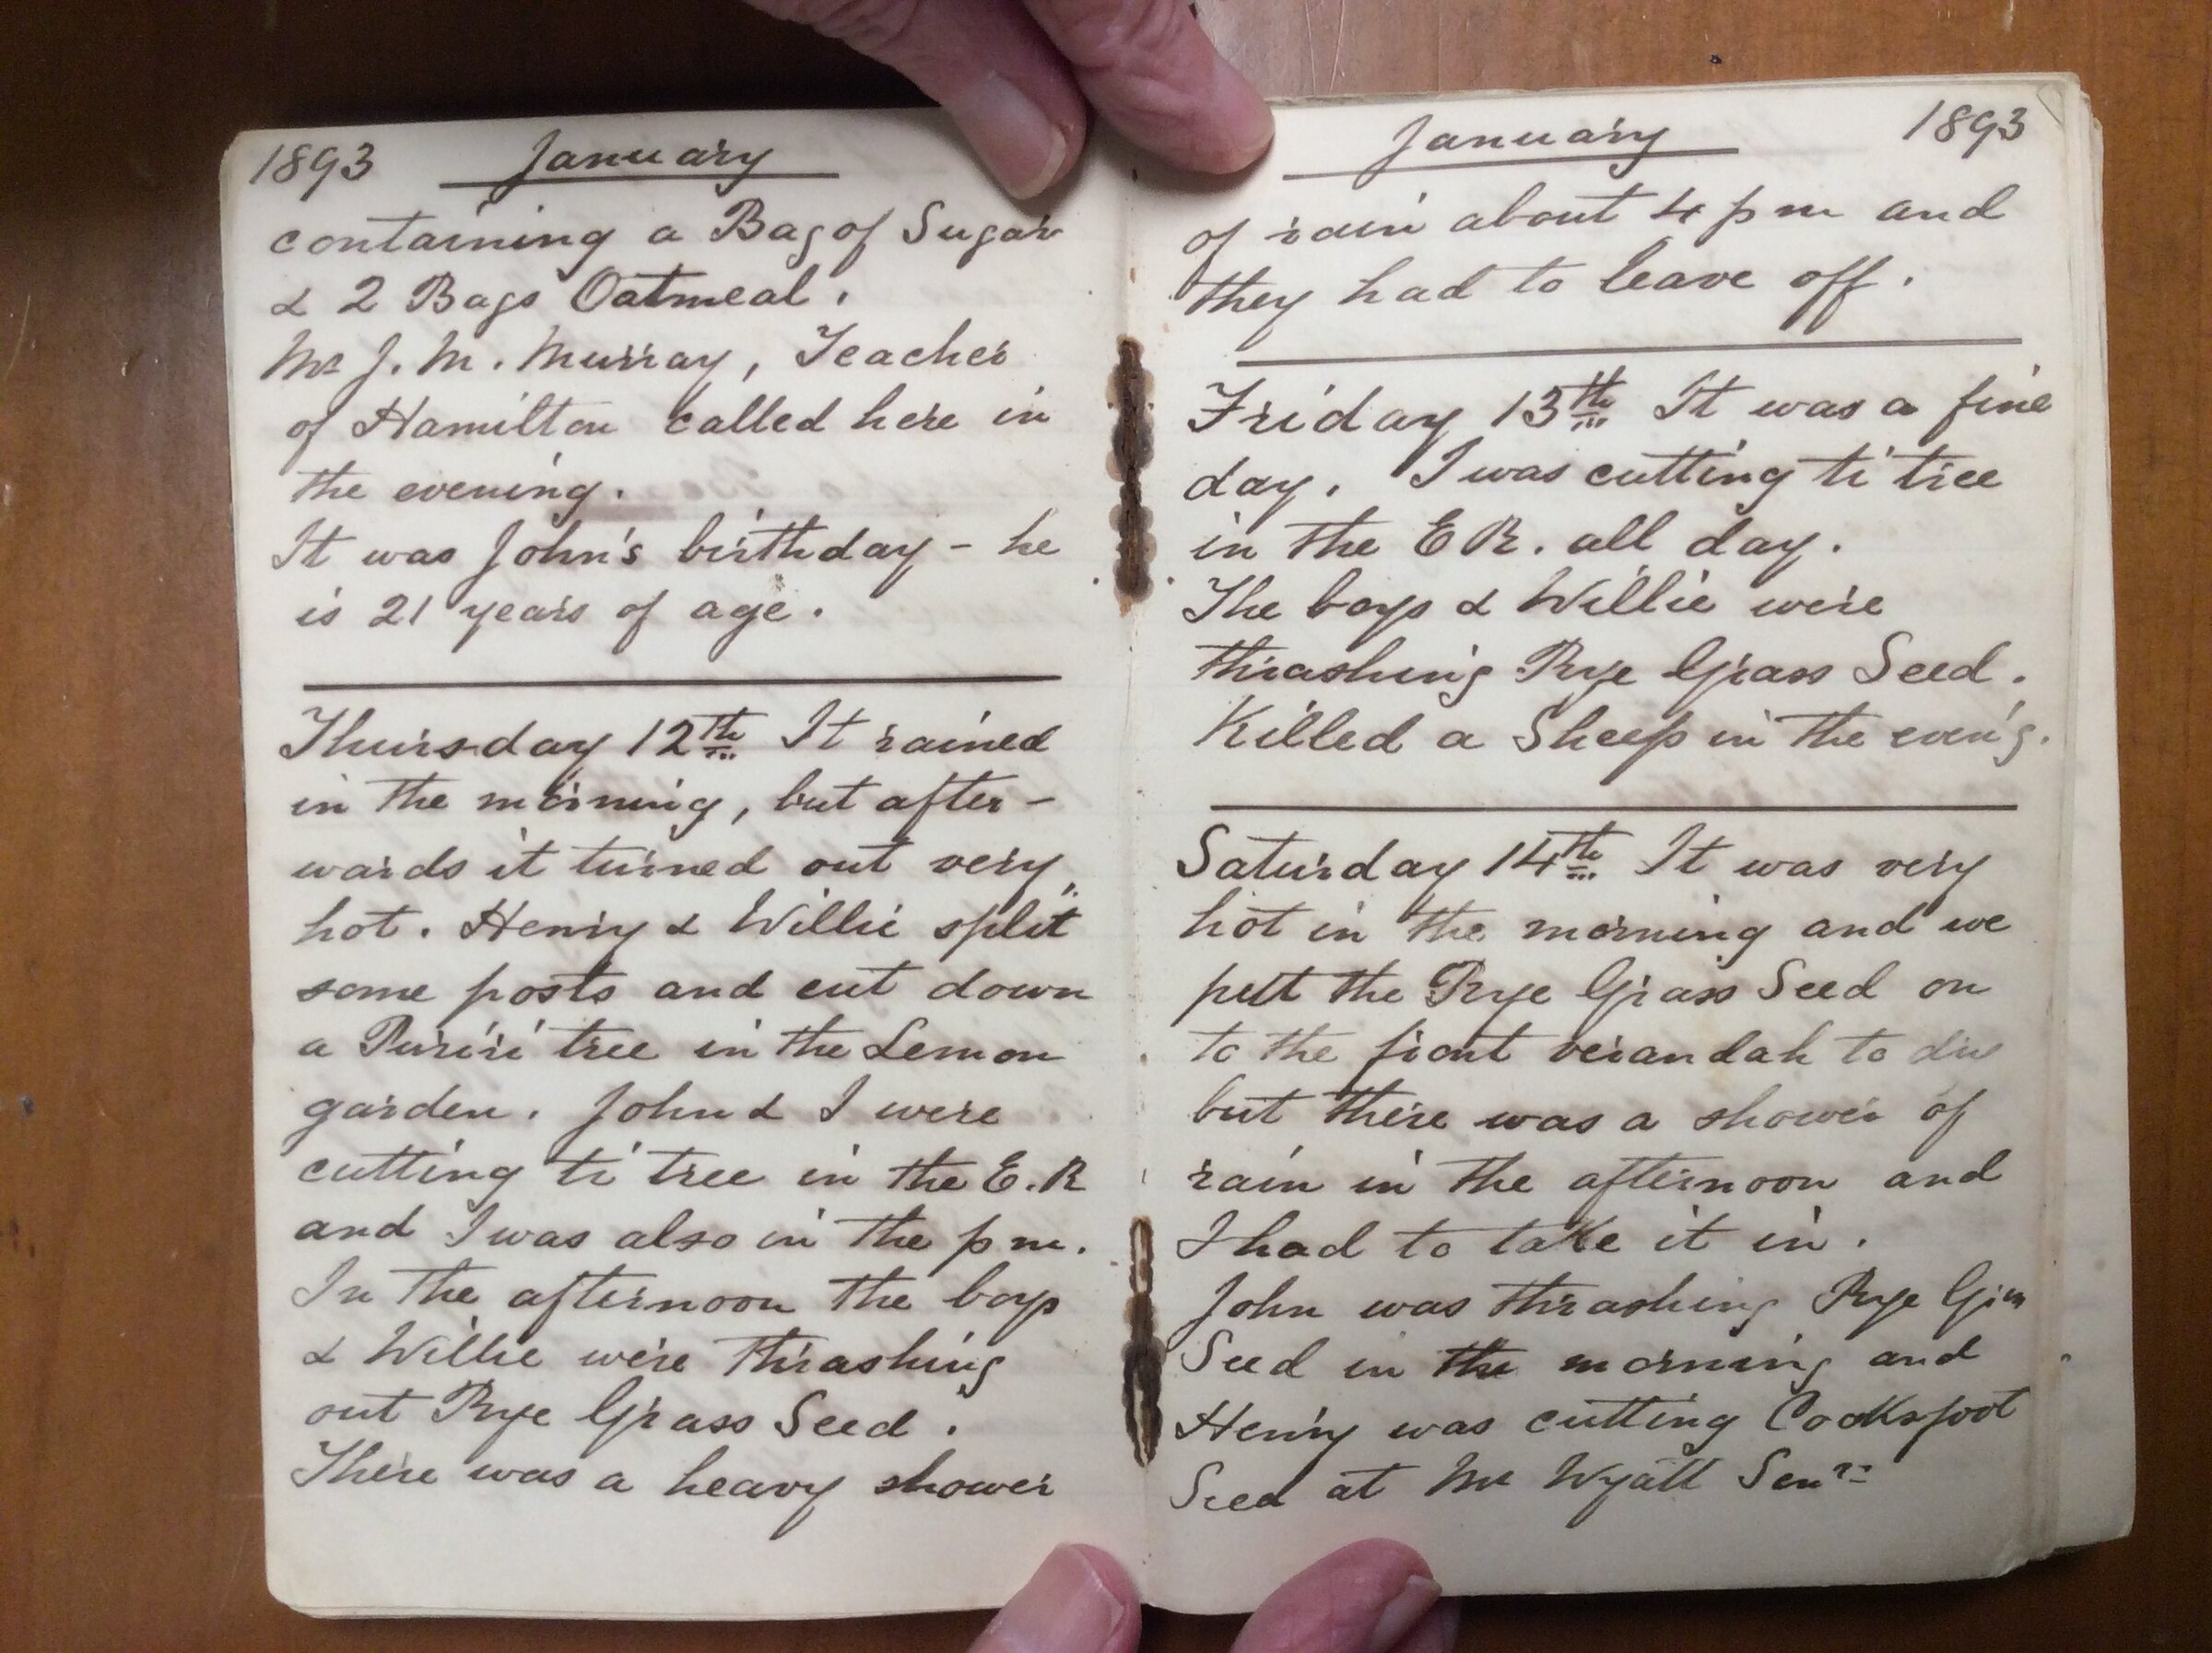 1893 January
containing a Bag of Sugar
& 2 Bags Oatmeal.
Mr J. M. Murray, Teacher
of Hamilton called here in
the evening.
It was John's birthday - he
is 21 years of age.
Thursday 12th It rained
in the morning, but after-
wards it turned out very
hot. Henry & Willie split
some posts and cut down
a Puriri tree in the Lemon
garden. John & I were
cutting ti tree in the E. R
and I was also in the p m.
In the afternoon the boys
& Willie were thrashing
out Rye Grass Seed.
There was a heavy shower
January 1893
of rain about 4 p m and
they had to leave off.
Friday 13th It was a fine
day. I was cutting ti tree
in the E R. all day.
The boys & Willie were
thrashing Rye Grass Seed.
Killed a Sheep in the even'g.
Saturday 14th It was very
hot in the morning and we
put the Rye Grass Seed on
to the front verandah to
but there was a shower of
rain in the afternoon and
I had to take it in.
John was thrashing Rye
Seed in the morning and
Henry was cutting Cocksfoot
Seed at Mr Wyatt Senr